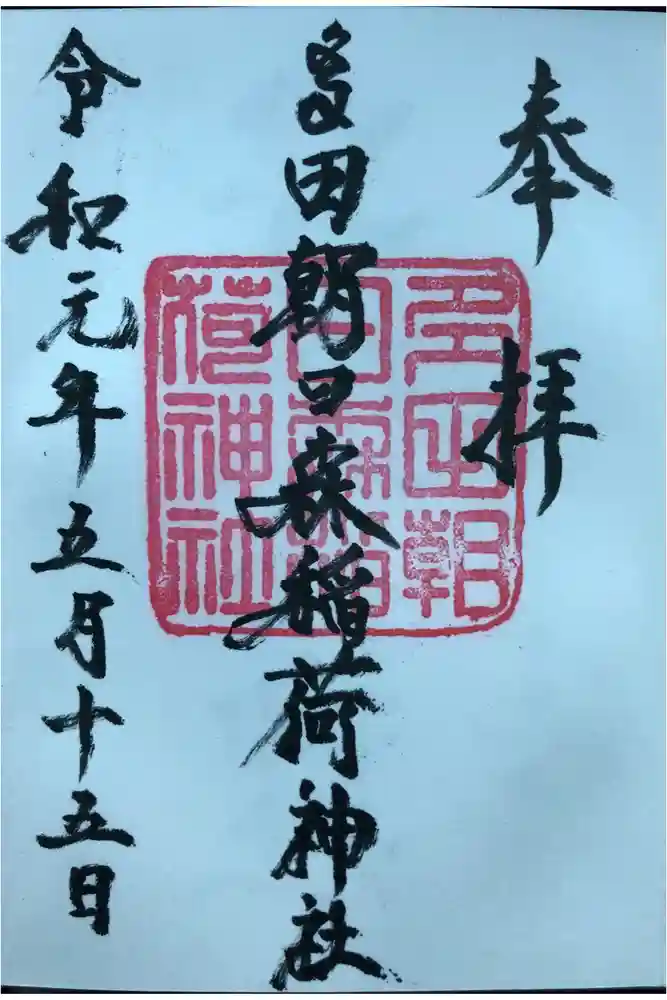 奉拝
多田朝日森稲荷神社
多田朝
日森稲
荷神社
令和元年五月十五日